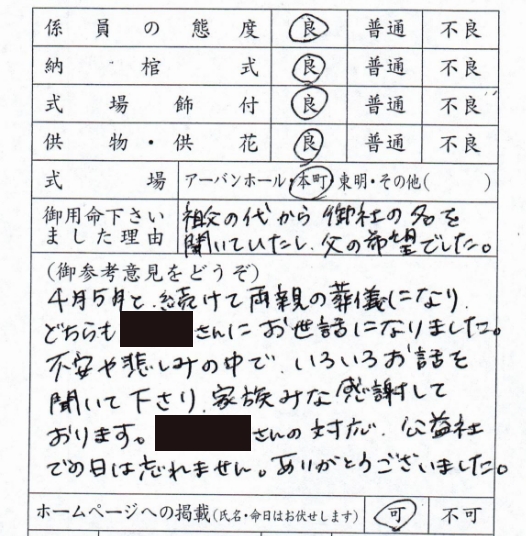 係員の態度 良 普通 不良
納棺式 良 普通 不良
式場飾付 良 普通 不良
供物・供花 良 普通 不良
式場 アーバンホール・本町・東明・その他( )
御用命下さいました理由
祖父の代から御社の名を
聞いていたし、父の希望でした。
(御参考意見をどうぞ)
4月5月と、続けて両親の葬儀になり、
どちらも さんにお世話になりました。
不安や悲しみの中で、いろいろお話を
聞いて下さり、家族みな感謝して
おります。 さんの対応、公益社
での日は忘れません。ありがとうございました。
ホームページへの掲載(氏名・命日はお伏せします) 可 不可